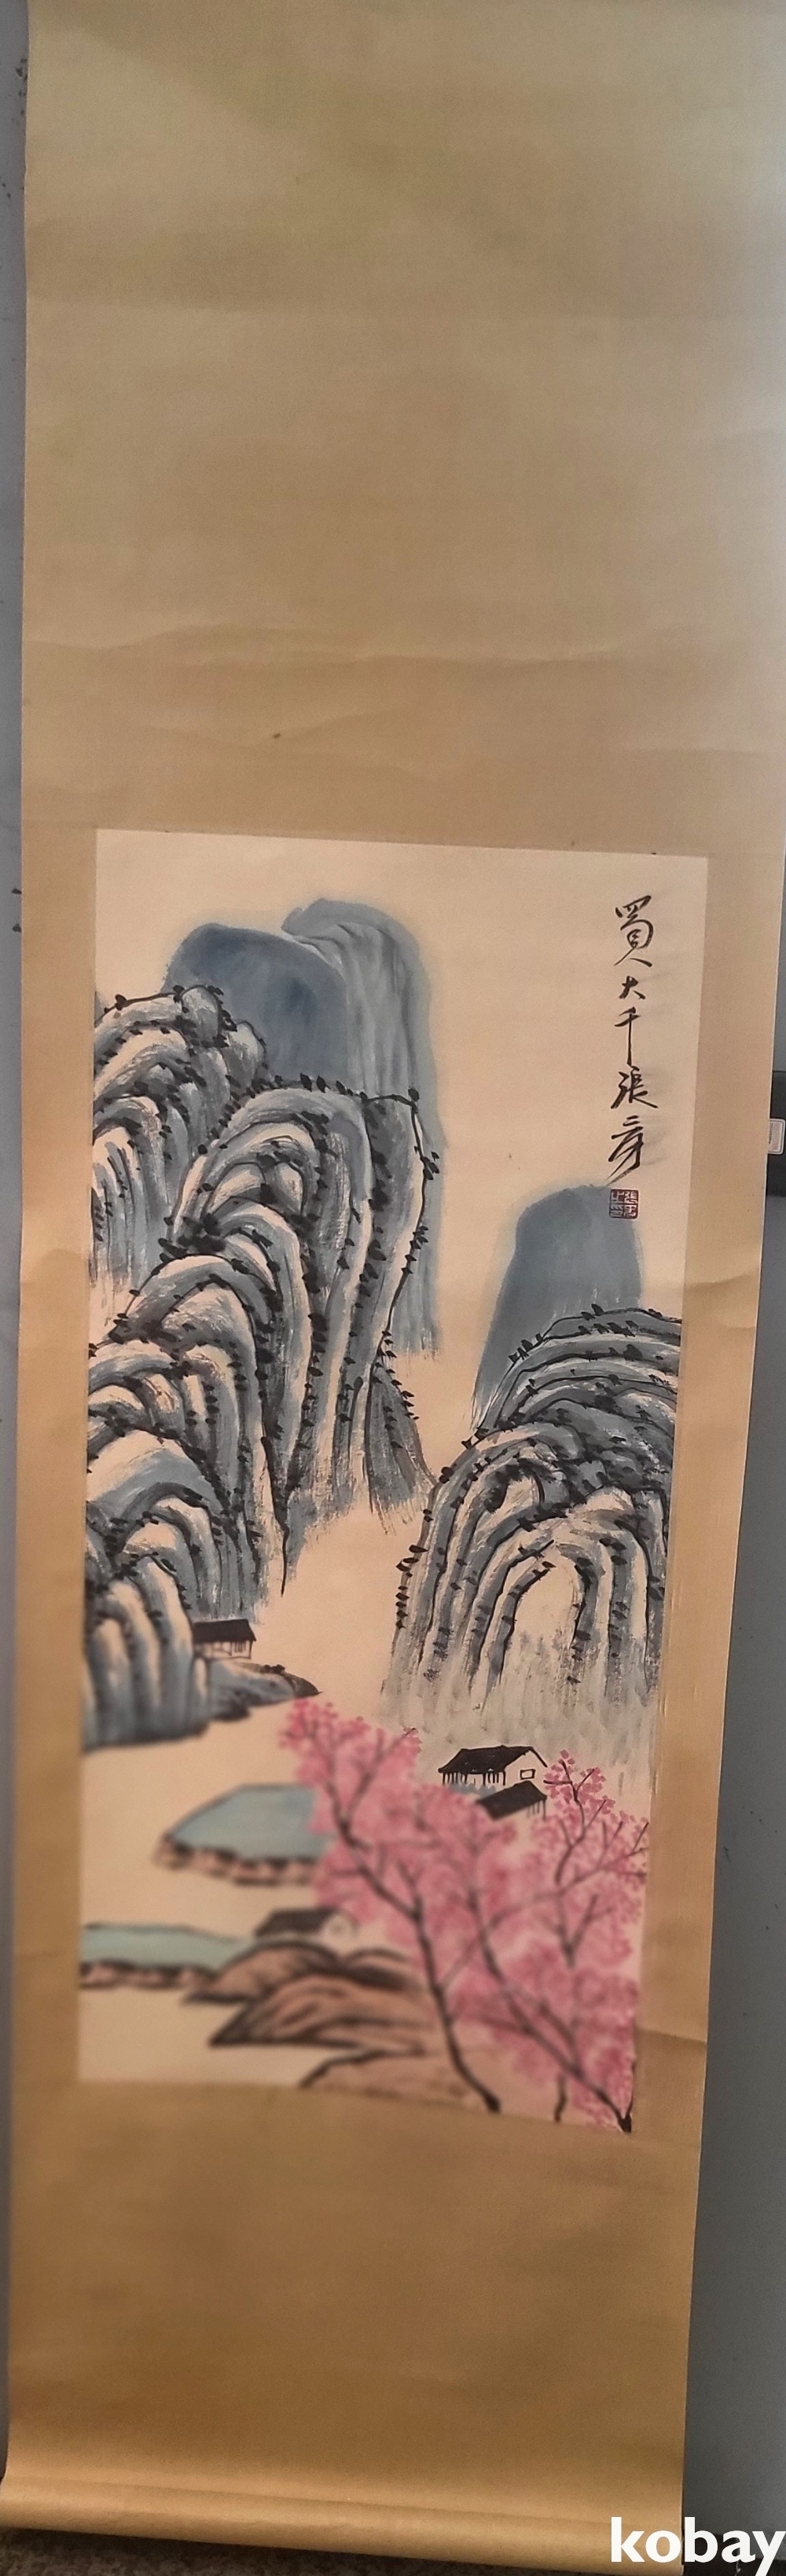 蜀人大千張爰
kobay